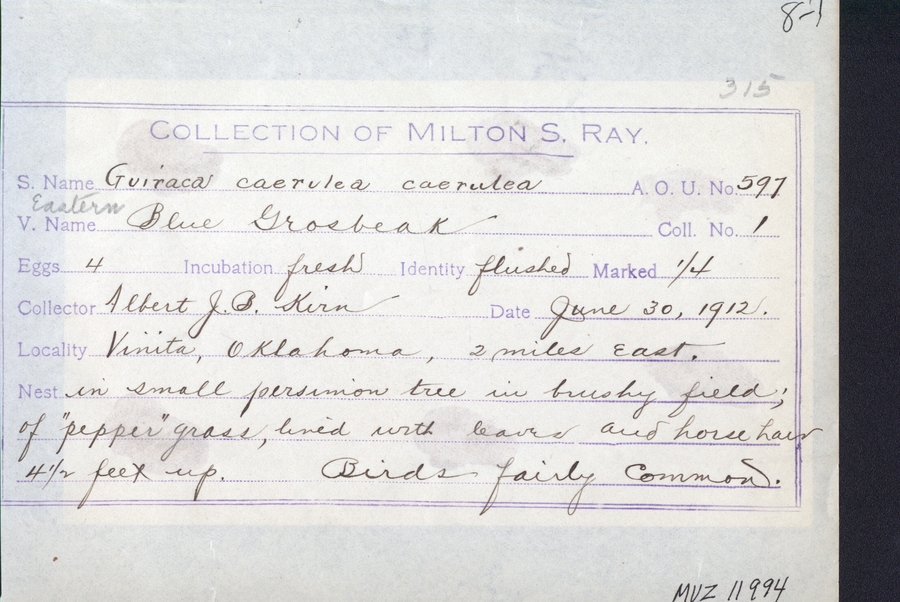 8-1
315
COLLECTION OF MILTON S. RAY.
S. Name Guiraca caerulea caerulea A. O. U. No. 597
Eastern
V. Name Blue Grosbeak Coll. No. 1
Eggs 4 Incubation fresh Identity flushed Marked 1/4
Collector Albert J. B. Kirn Date June 30, 1912.
Locality Vinita, Oklahoma, 2 miles East.
Nest in small persimon tree in brushy field;
of "pepper" grass, lined with leaves and horse hair
4 1/2 feet up. Birds fairly common.
MVZ 11994